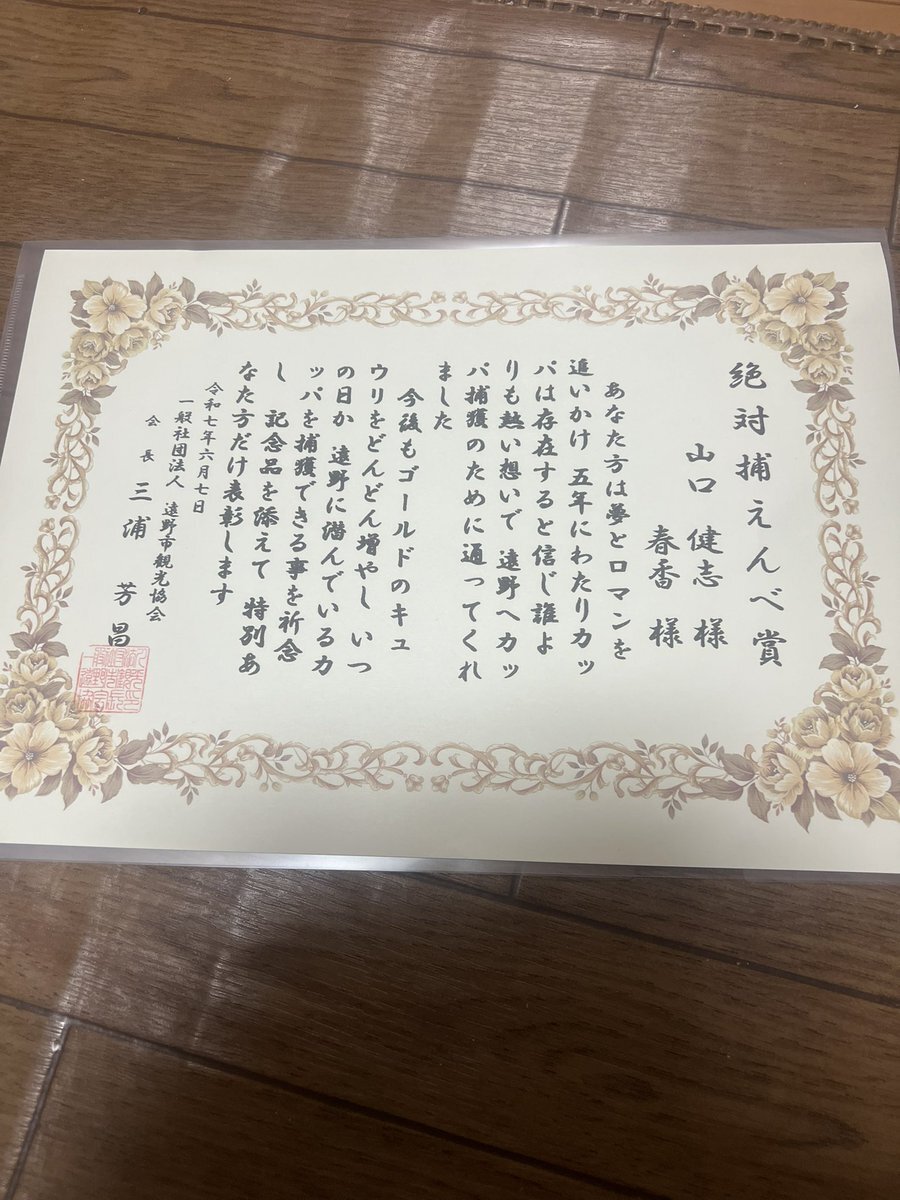 絶対捕えんべ賞
山口 健志 様
春香 様
あなた方は夢とロマンを
追いかけ 五年にわたりカッ
パは存在すると信じ誰よ
りも熱い想いで 遠野へカッ
パ捕獲のために通ってくれ
ました
今後もゴールドのキュ
ウリをどんどん増やし いつ
の日か 遠野に潜んでいるカ
ッパを捕獲できる事を祈念
し 記念品を添えて 特別あ
なた方だけ表彰します
令和七年六月七日
一般社団法人 遠野市観光協会
会長 三浦 芳昌